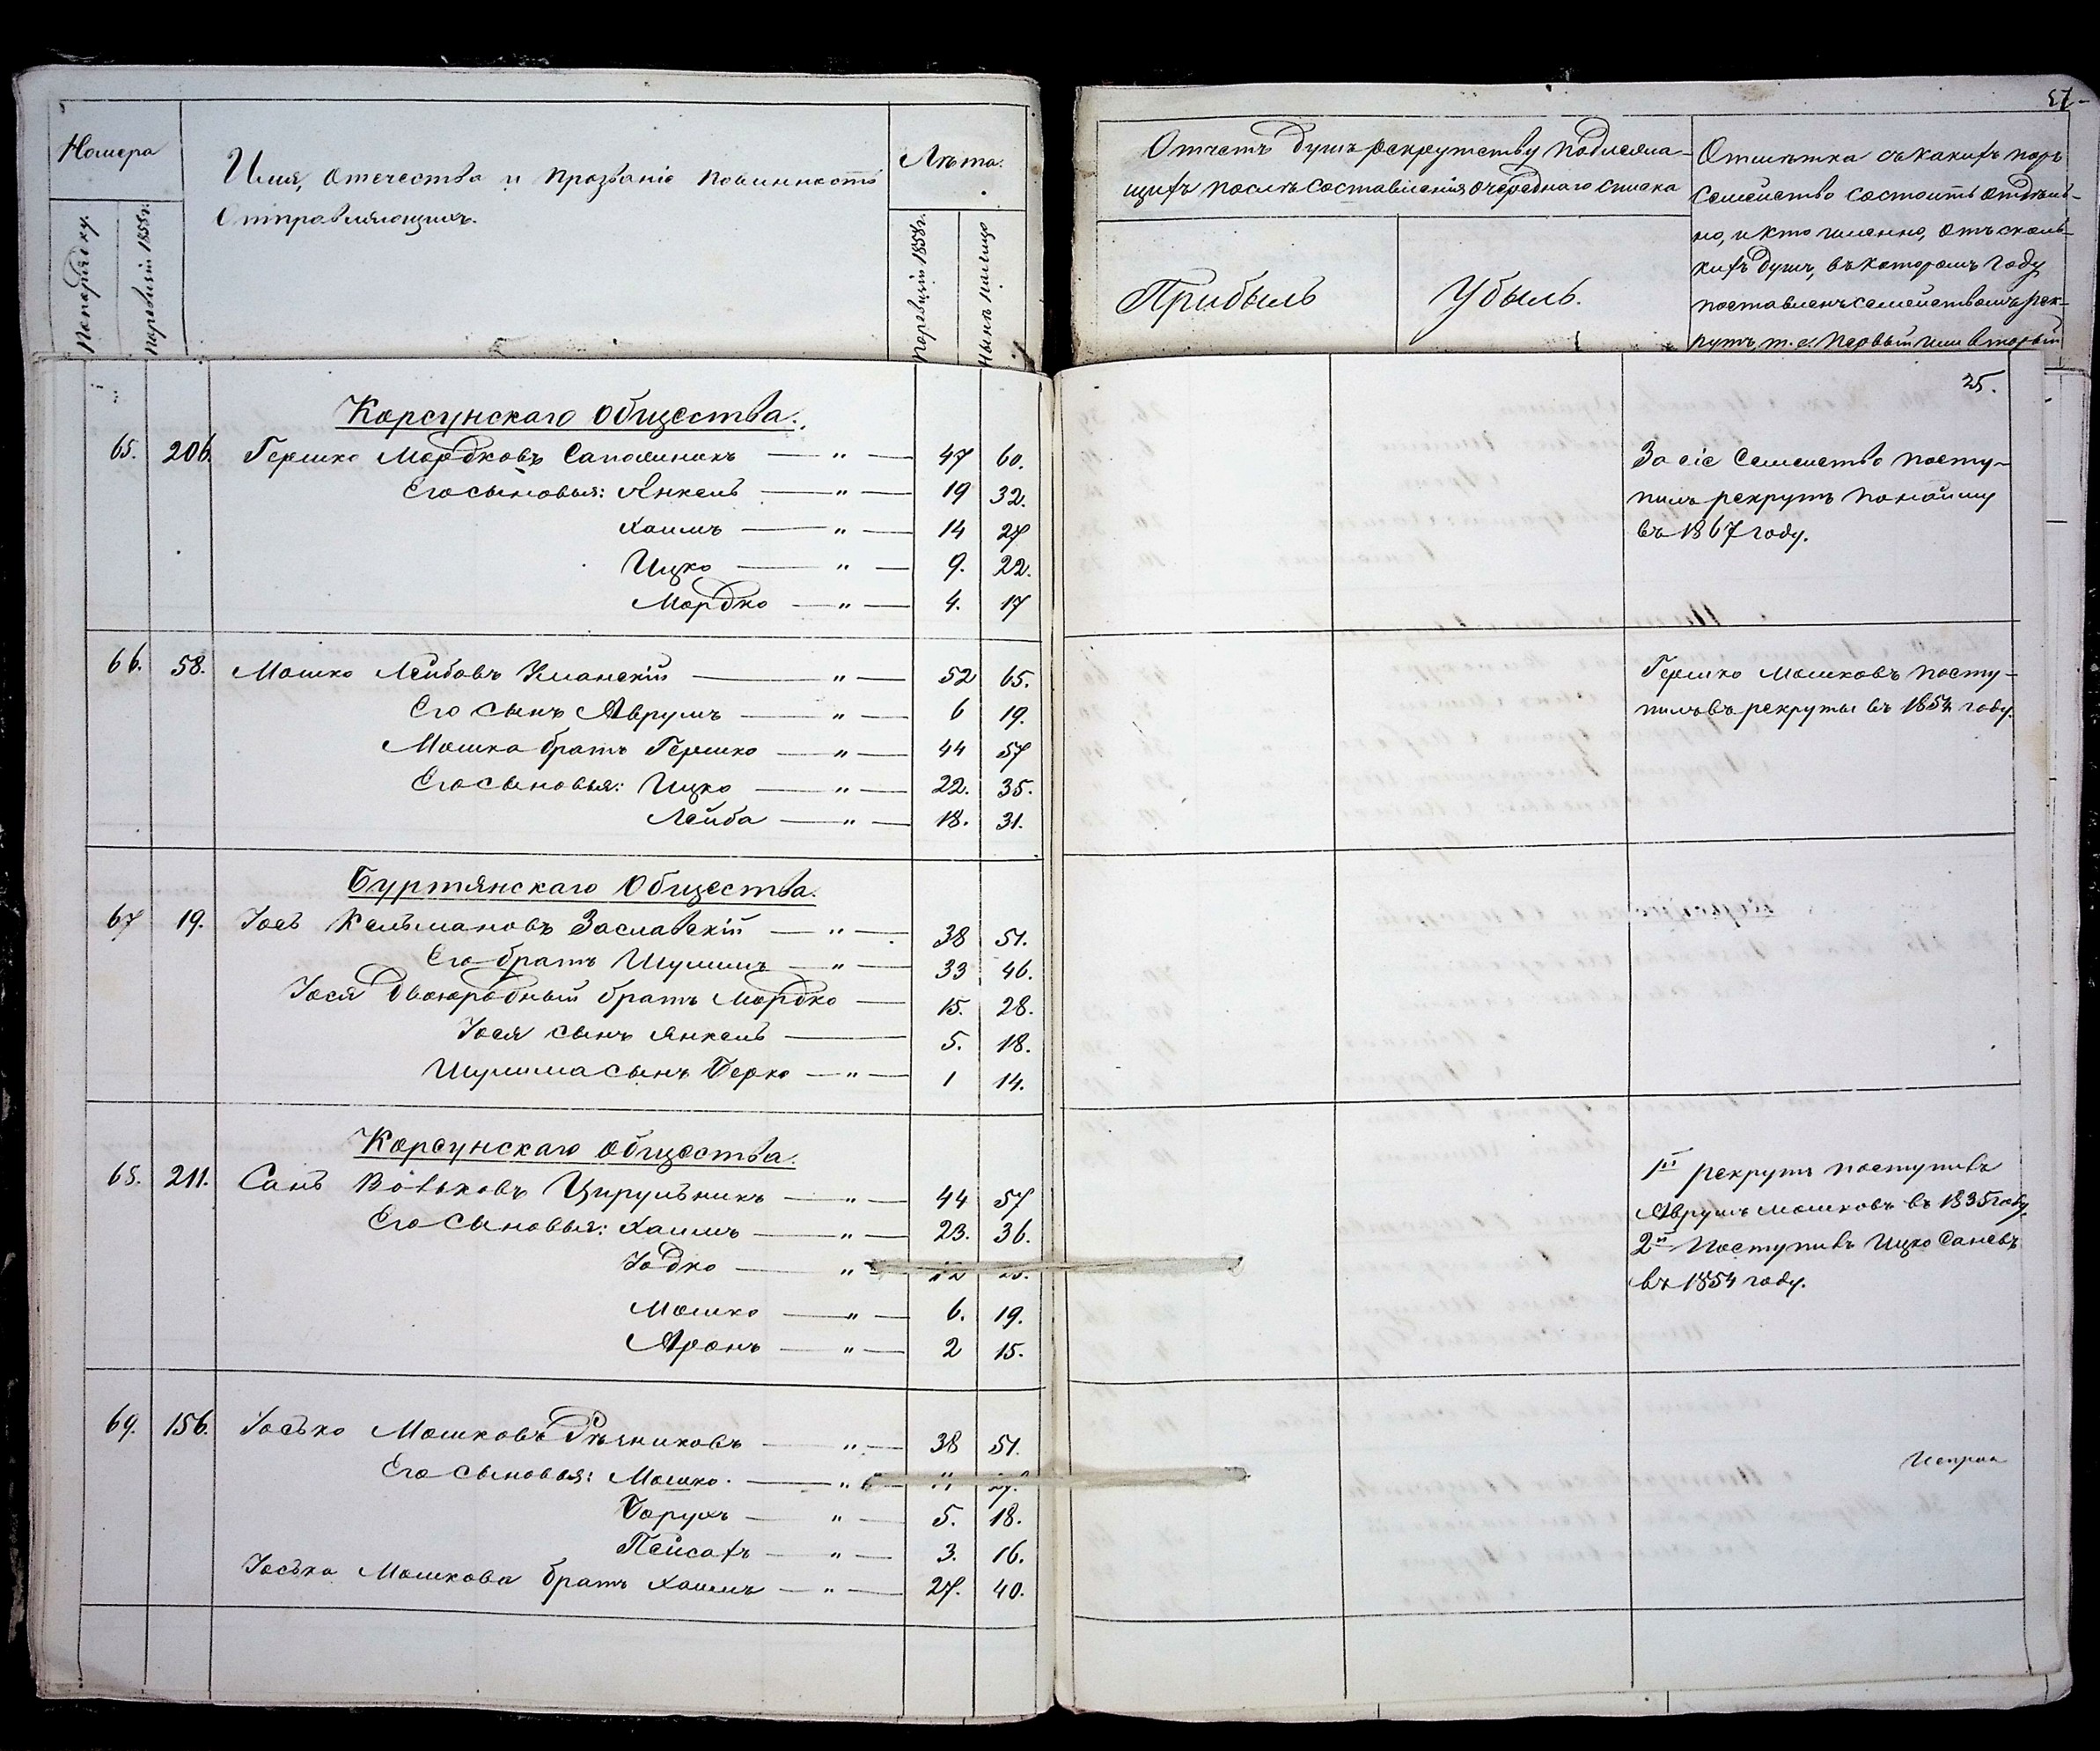 Номера
Имя, отечества и прозваніе повинность
отправляющихъ.
Лѣта.
По порядку.
По ревизіи 1858 г.
По ревизіи 1858 г.
Нынѣ имѣетъ
57
Отчетъ душъ рекрутству подлежа-
щихъ послѣ составленія очереднаго списка
Прибыль
Убыль.
Отмѣтка съ какихъ поръ
семейство состоитъ отдѣль-
но, и кто именно, отъ сколь-
кихъ душъ, въ которомъ году
поставленъ семействомъ рек-
рутъ, т. е. первый или вторый
25.
Корсунскаго Общества.
65. 206. Гершко Мордковъ Сапожникъ — " — 47 60.
Его сыновья: Янкель — " — 19 32.
Хаимъ — " — 14 27
Ицко — " — 9. 22.
Мордко — " — 4. 17
За сіе семейство посту-
пилъ рекрутъ по найму
въ 1867 году.
66. 58. Мошко Лейбовъ Уманскій — " — 52 65.
Его сынъ Аврумъ — " — 6 19.
Мошка братъ Гершко — " — 44 57
Его сыновья: Ицко — " — 22. 35.
Лейба — " — 18. 31.
Гершко Мошковъ посту-
пилъ въ рекруты въ 1854 году.
Буртянскаго Общества.
67 19. Іось Кельмановъ Заславскій — " — 38 51.
Его братъ Шулимъ — " — 33 46.
Іося двоюродный братъ Мордко — 15. 28.
Іося сынъ Янкель — 5. 18.
Шулима сынъ Берко — " — 1 14.
Корсунскаго Общества.
68. 211. Сань Вольковъ Цирульникъ — " — 44 57
Его сыновья: Хаимъ — " — 23. 36.
Іодко — " — 12 25.
Мошко — " — 6. 19.
Аронъ — " — 2 15.
1й рекрутъ поступилъ
Аврумъ Мошковъ въ 1835 году.
2й поступилъ Ицко Саневъ
въ 1854 году.
69. 156. Іосько Мошковъ — " — 38 51.
Его сыновья: Мошко. — "
Борухъ — " — 5. 18.
Пейсахъ — " — 3. 16.
Іоська Мошкова братъ Хаимъ — " — 27. 40.